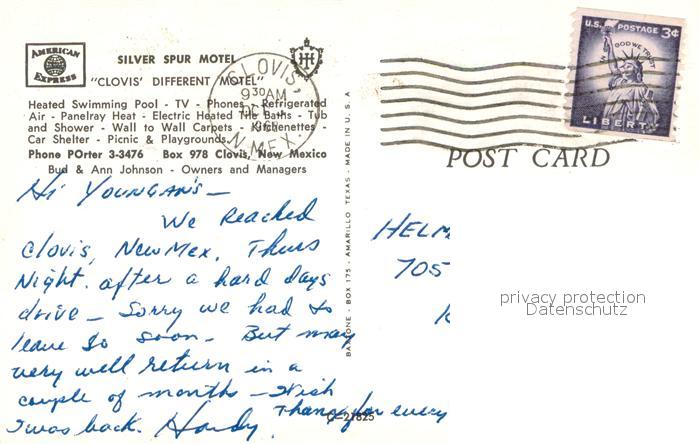 AMERICAN
EXPRESS
SILVER SPUR MOTEL
"CLOVIS' DIFFERENT MOTEL"
Heated Swimming Pool - TV - Phones - Refrigerated
Air - Panelray Heat - Electric Heated Tile Baths - Tub
and Shower - Wall to Wall Carpets - Kitchenettes -
Car Shelter - Picnic & Playgrounds.
Phone POrter 3-3476 Box 978 Clovis, New Mexico
Bud & Ann Johnson - Owners and Managers
CLOVIS,
9 30 AM
N. MEX.
U.S. POSTAGE 3¢
IN GOD WE TRUST
LIBERTY
POST CARD
BAXTONE - BOX 175 - AMARILLO TEXAS - MADE IN U.S.A
Hi YOUNGAN'S —
We Reached
Clovis, New Mex, Thurs
Night. after a hard days
drive — Sorry we had to
leave so soon. But may
very well return in a
couple of months — Wish
I was back. Handy. Thanx for every
HELM
705
privacy protection
Datenschutz
C-21825